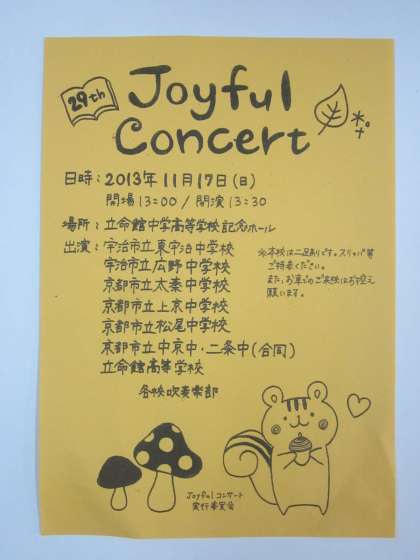 29th
Joyful
Concert
日時：2013年11月17日(日)
開場13:00 / 開演13:30
場所：立命館中学高等学校記念ホール
出演：宇治市立東宇治中学校
宇治市立広野中学校
京都市立太秦中学校
京都市立上京中学校
京都市立松尾中学校
京都市立中京中・二条中(合同)
立命館高等学校
各校吹奏楽部
※本校は二足制です。スリッパ等
ご持参ください。
また、お車でのご来校はお控え
願います。
Joyful コンサート
実行委員会